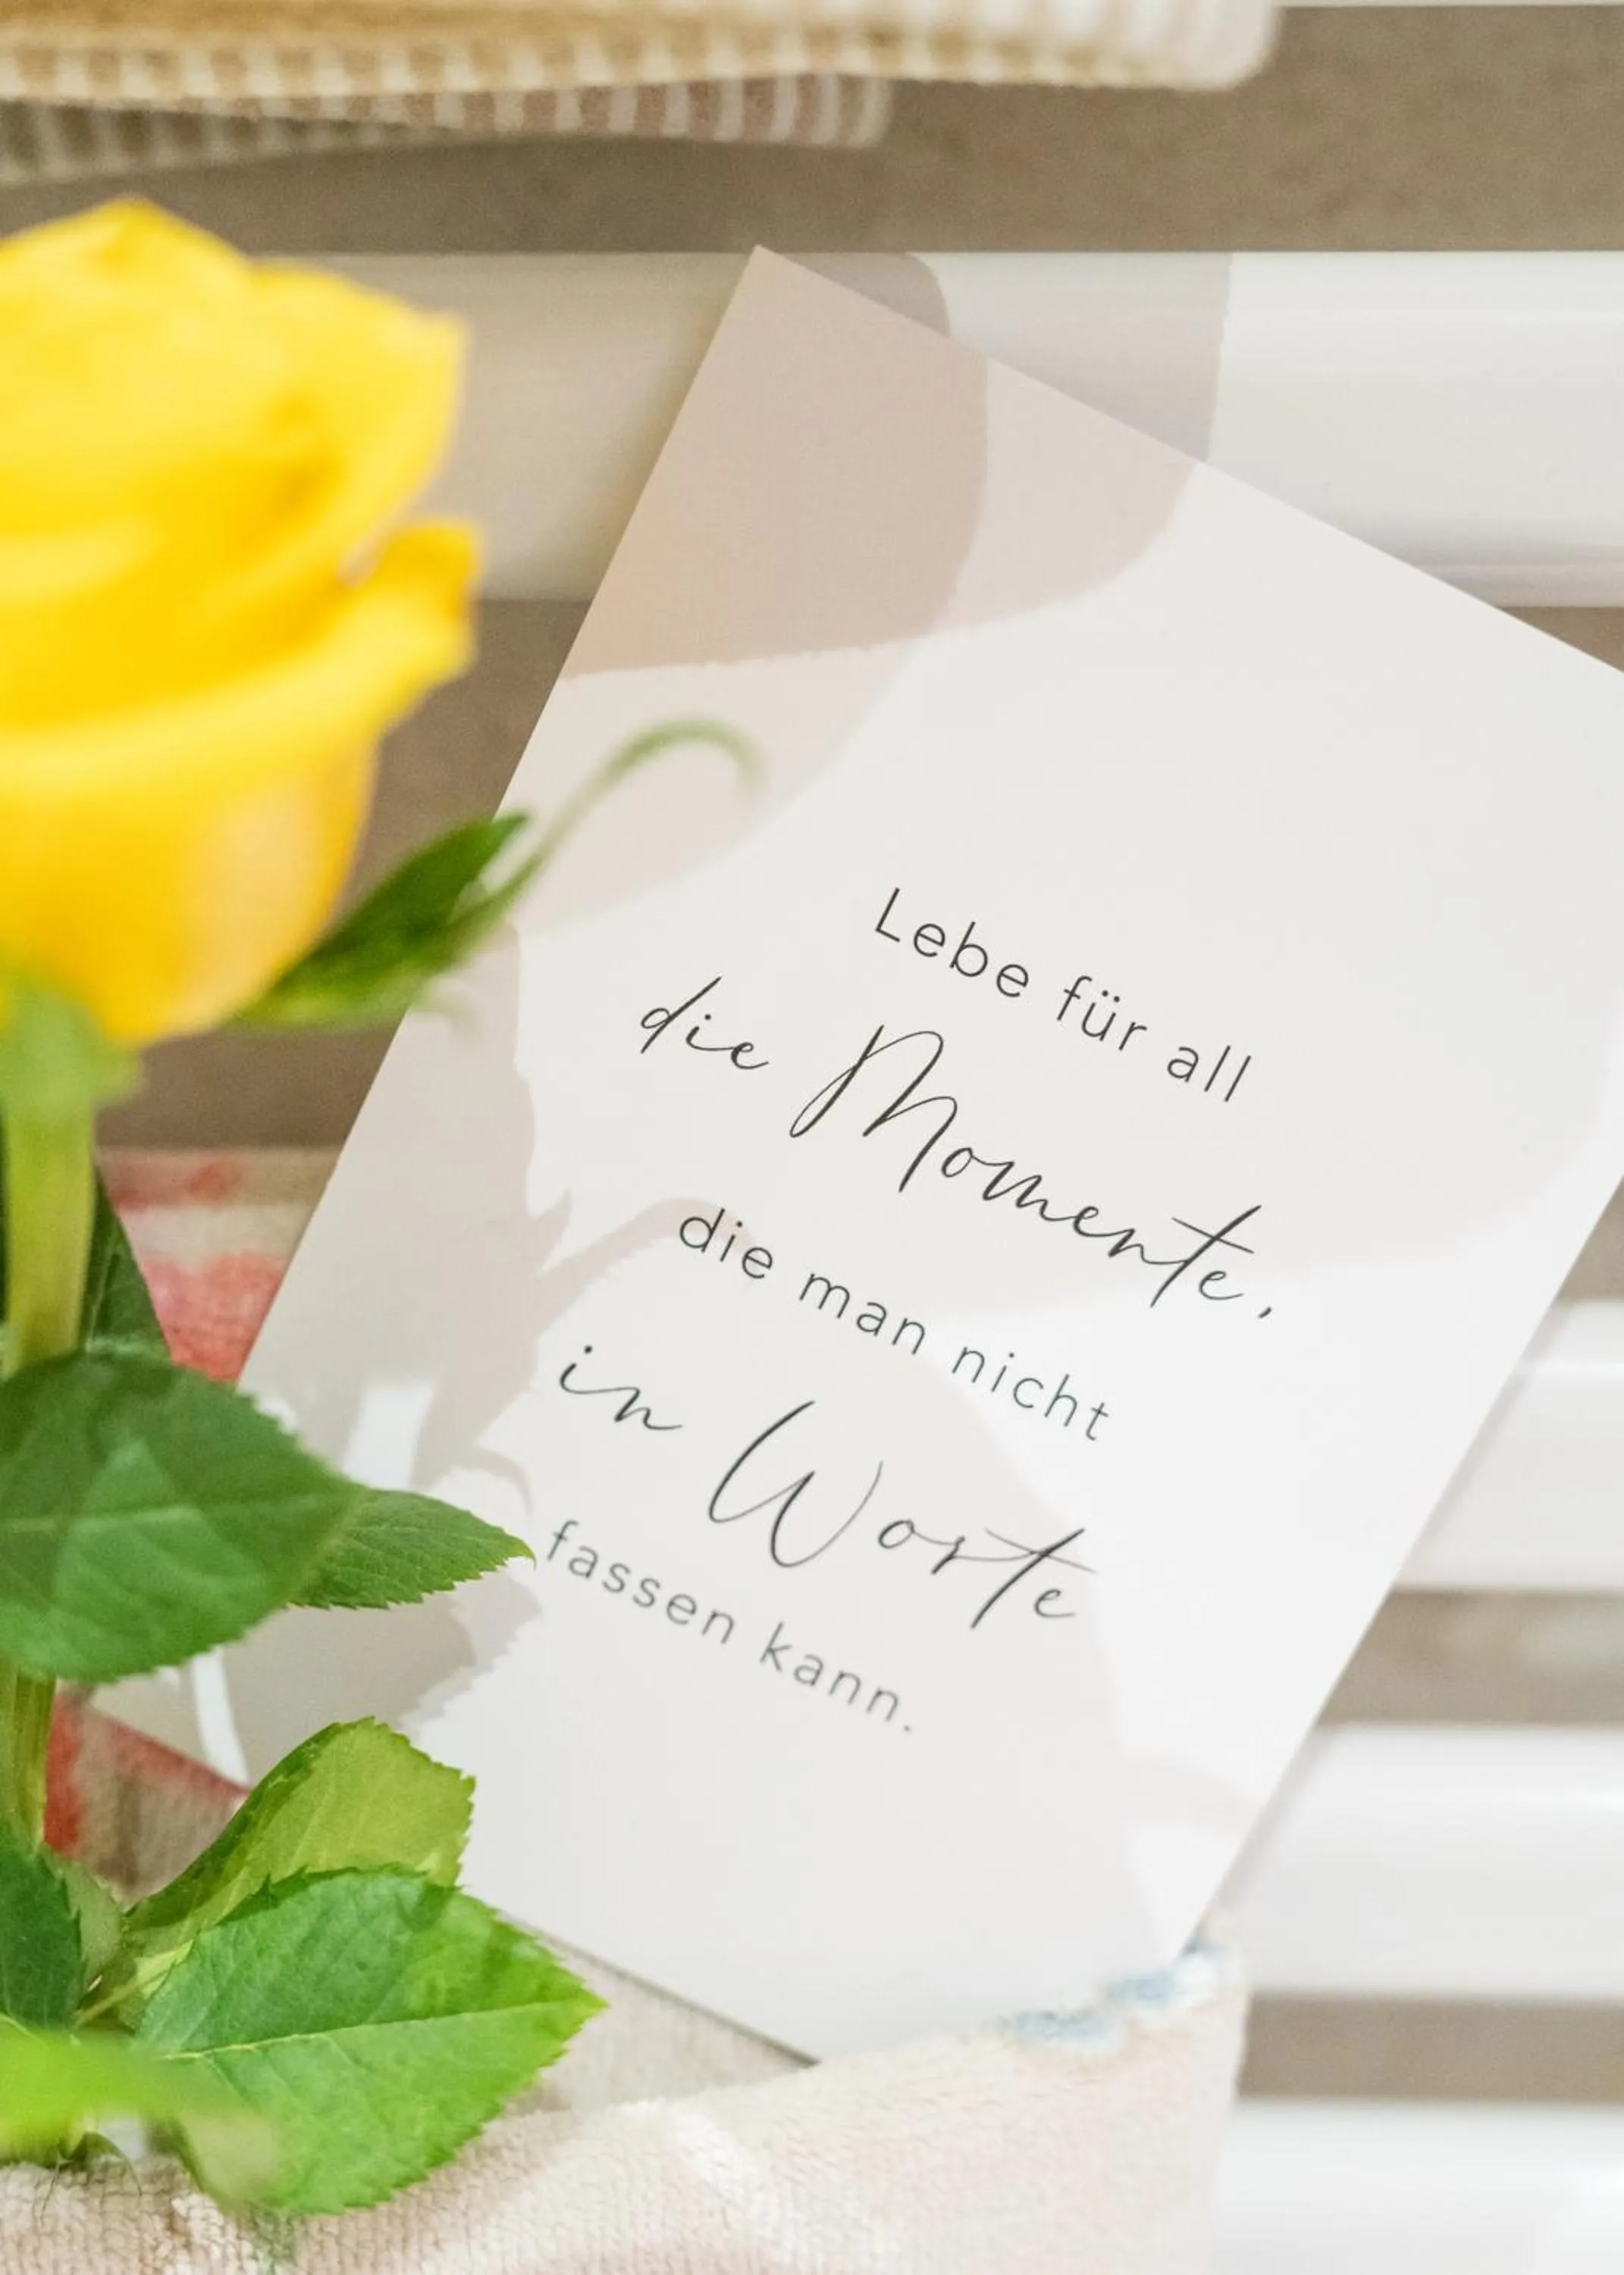 Lebe für all
die Momente,
die man nicht
in Worte
fassen kann.